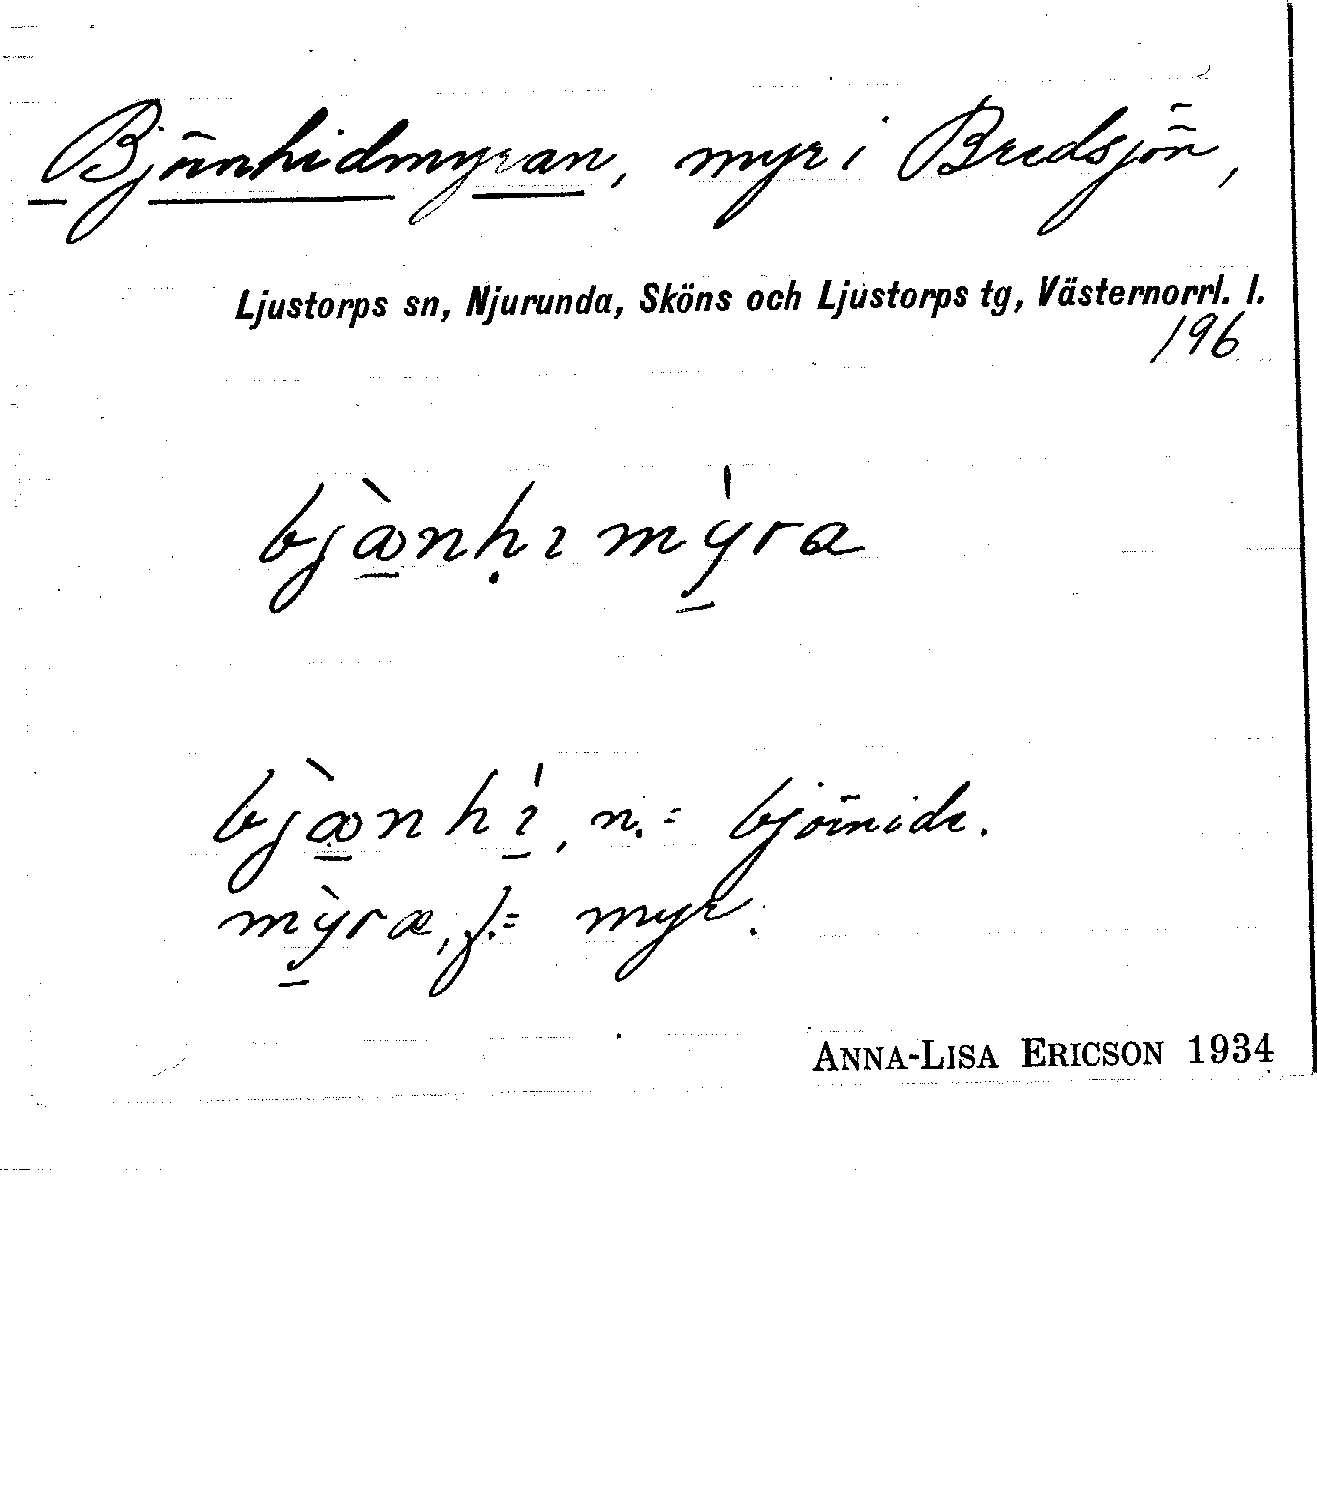 Björnhidmyran, myr i Bredsjön,
Ljustorps sn, Njurunda, Sköns och Ljustorps tg, Västernorrl. l.
196
bjæ̀nḥımy̍ra
bjæ̀nhı̍, n. = björnide.
mỳræ, f. = myr.
ANNA-LISA ERICSON 1934